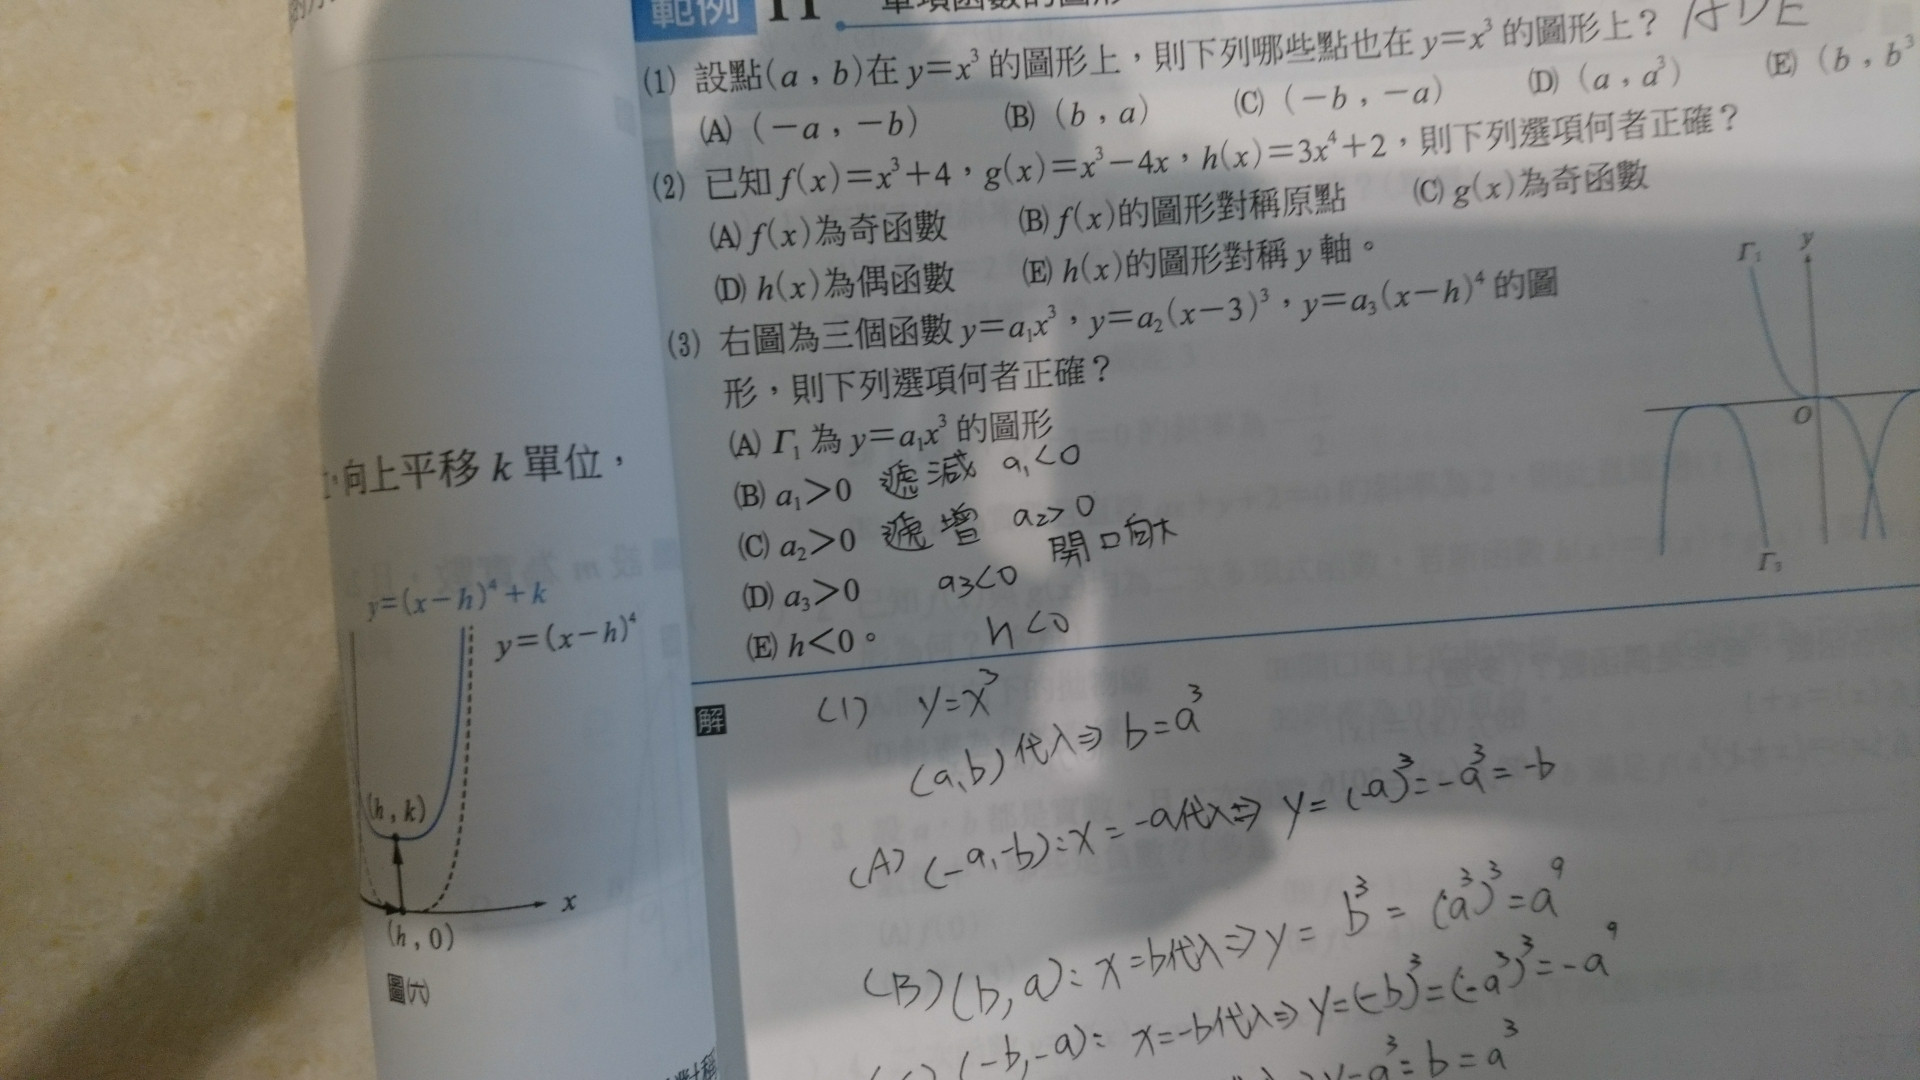 範例 11 單項函數的圖形
(1) 設點(a,b)在 y=x³ 的圖形上,則下列哪些點也在 y=x³ 的圖形上? ADE
(A) (-a,-b) (B) (b,a) (C) (-b,-a) (D) (a,a³) (E) (b,b³
(2) 已知 f(x)=x³+4,g(x)=x³-4x,h(x)=3x⁴+2,則下列選項何者正確?
(A) f(x)為奇函數 (B) f(x)的圖形對稱原點 (C) g(x)為奇函數
(D) h(x)為偶函數 (E) h(x)的圖形對稱 y 軸。
(3) 右圖為三個函數 y=a₁x³,y=a₂(x-3)³,y=a₃(x-h)⁴ 的圖
形,則下列選項何者正確?
(A) Γ₁ 為 y=a₁x³ 的圖形
(B) a₁>0 遞減 a₁<0
(C) a₂>0 遞增 a₂>0
開口向下
(D) a₃>0 a₃<0
(E) h<0。 h<0
Γ₁
y
O
Γ₃
向上平移 k 單位,
y=(x-h)⁴+k
y=(x-h)⁴
(h,k)
x
(h,0)
圖(六)
對稱
解
(1) y=x³
(a,b)代入⇒ b=a³
(A) (-a,-b):x=-a代入⇒ y=(-a)³=-a³=-b
(B) (b,a):x=b代入⇒ y=b³=(a³)³=a⁹
(-b,-a): x=-b代入⇒ y=(-b)³=(-a³)³=-a⁹
y=a³=b=a³